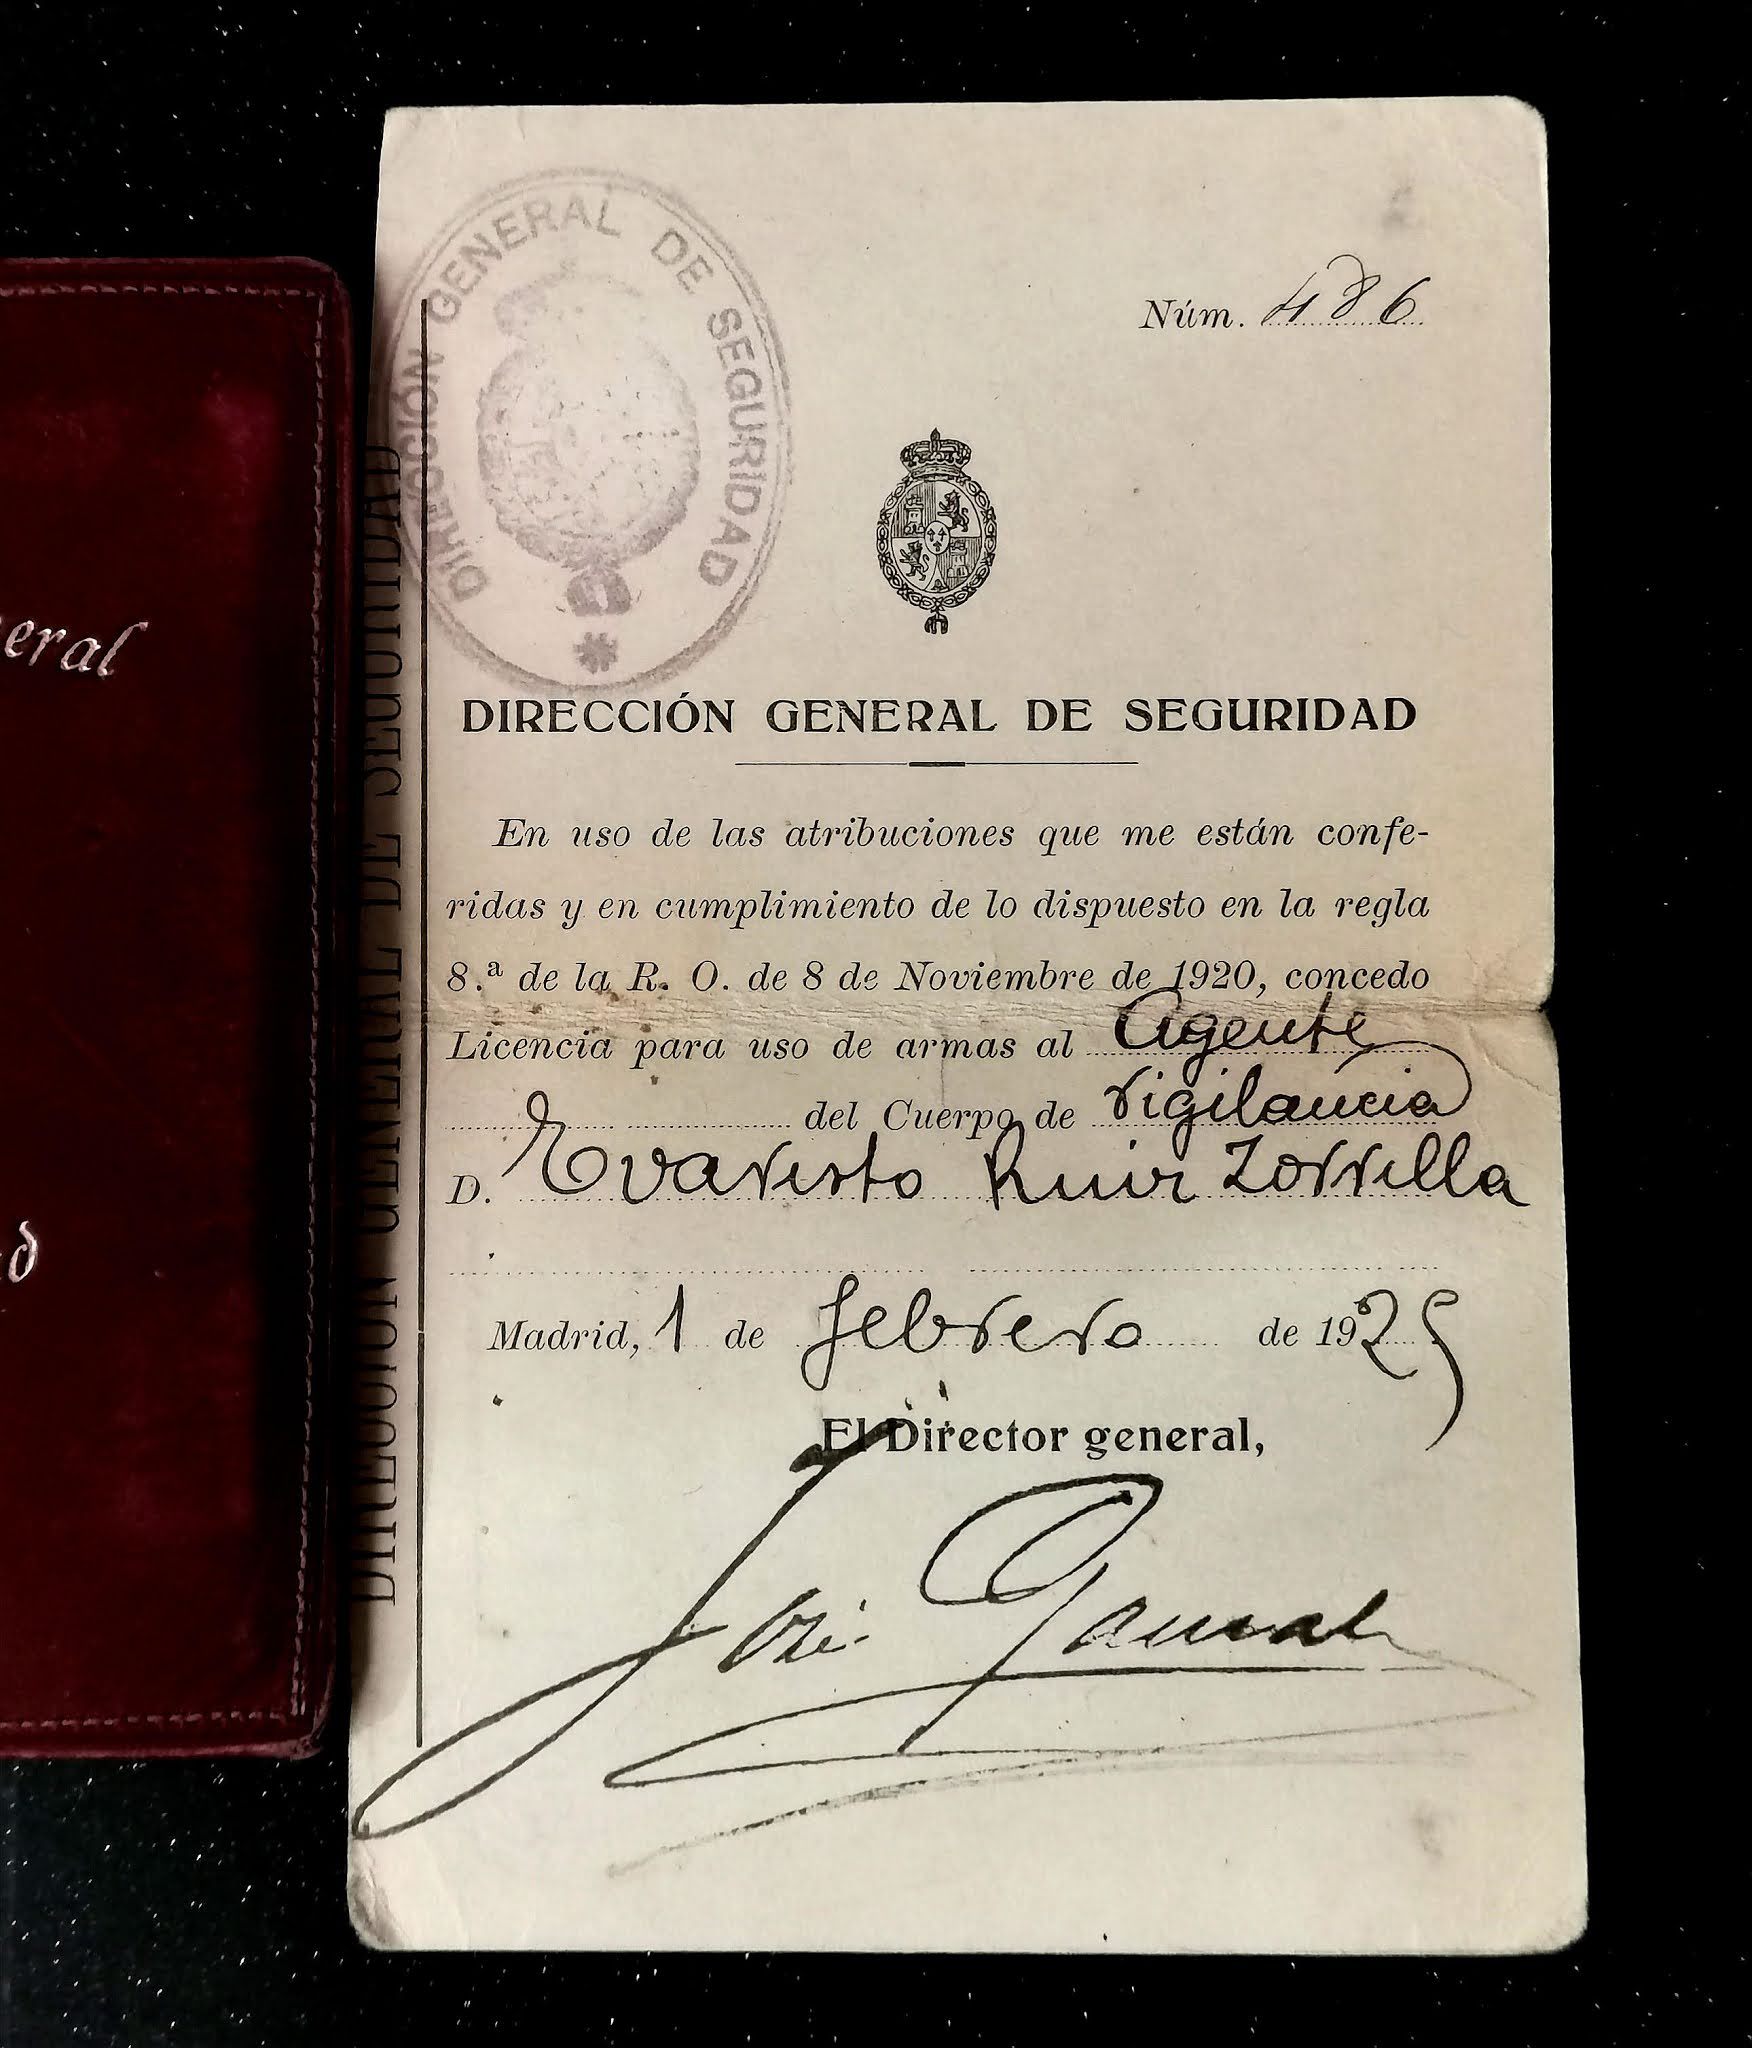 eral
d
DIRECCIÓN GENERAL DE SEGURIDAD
DIRECCIÓN GENERAL DE SEGURIDAD
Núm. 486
DIRECCIÓN GENERAL DE SEGURIDAD
En uso de las atribuciones que me están confe-
ridas y en cumplimiento de lo dispuesto en la regla
8.ª de la R. O. de 8 de Noviembre de 1920, concedo
Licencia para uso de armas al Agente
del Cuerpo de Vigilancia
D. Evaristo Ruiz Zorrilla
Madrid, 1 de febrero de 1925
El Director general,
José